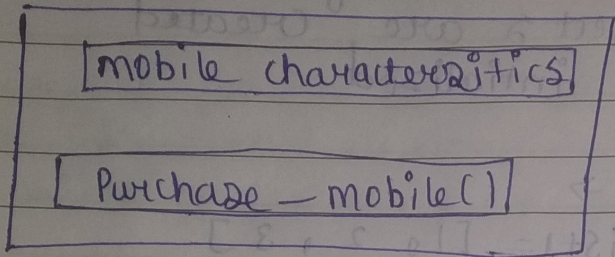 mobile characterzitics
Purchase - mobile()